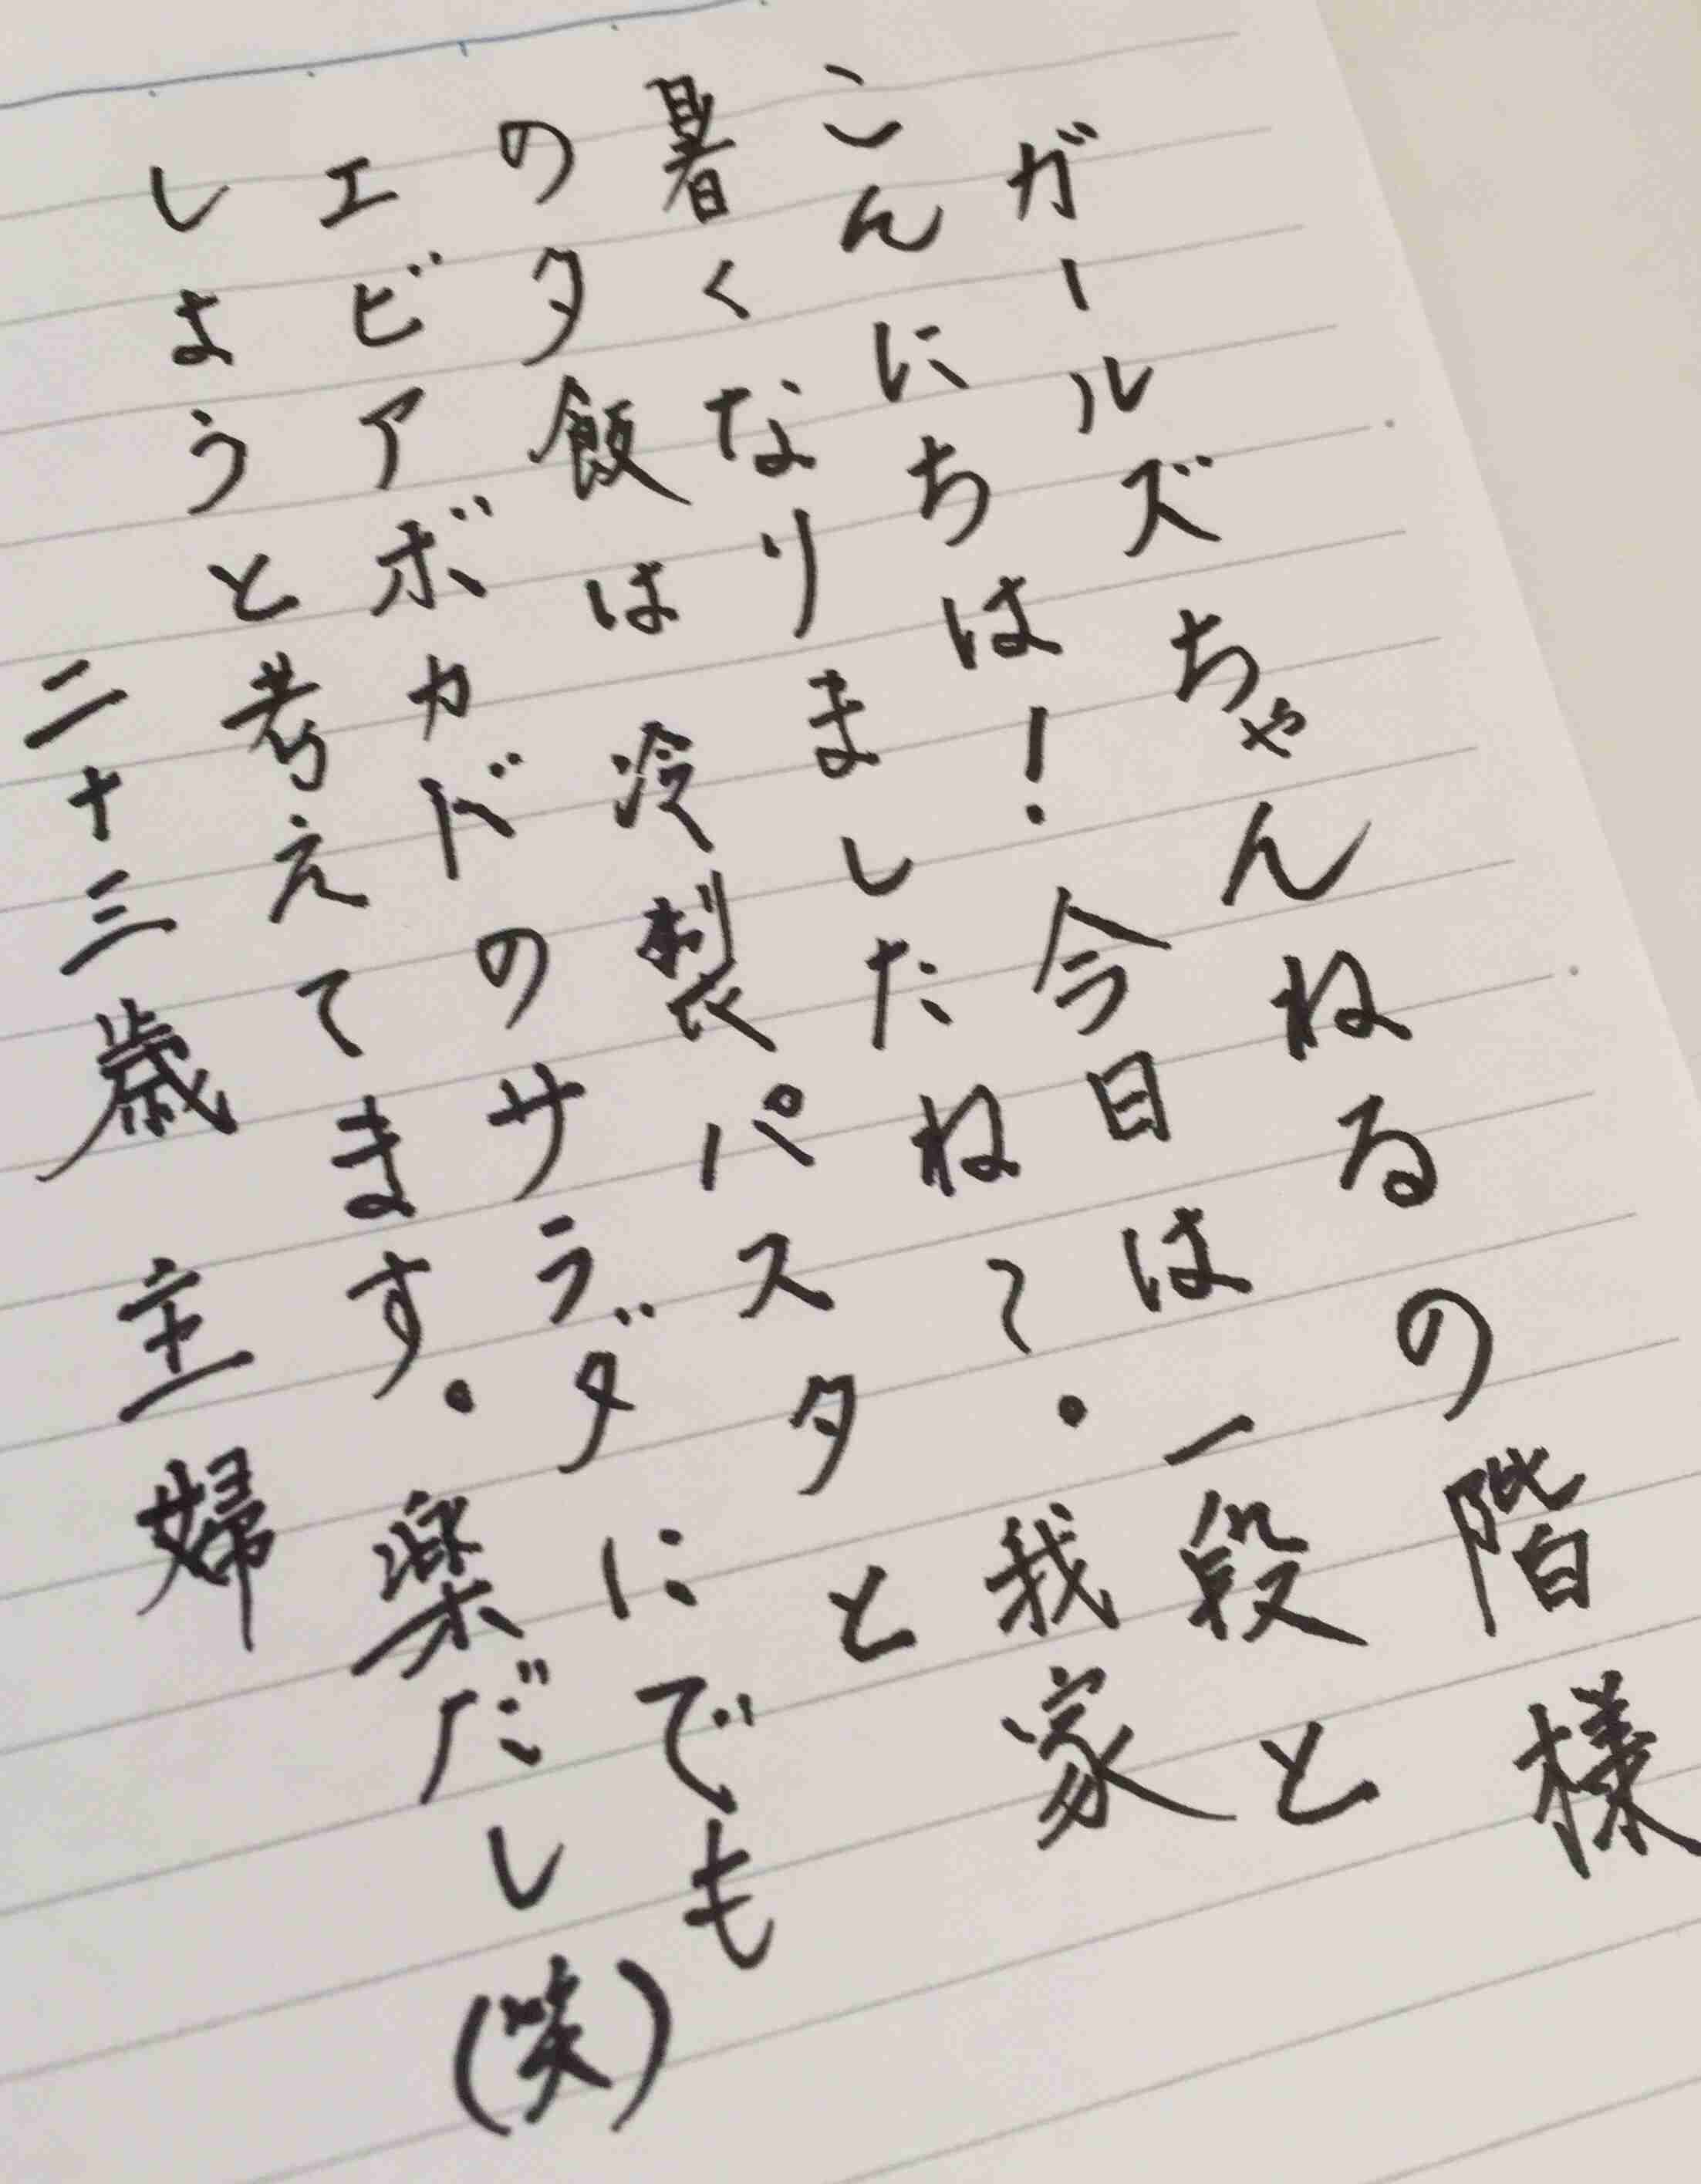 ガールズちゃんねるの階様
こんにちは！今日は一段と
暑くなりましたね〜。我家
の夕飯は冷製パスタと
エビアボカドのサラダにでも
しようと考えてます。楽だし(笑)
二十三歳 主婦